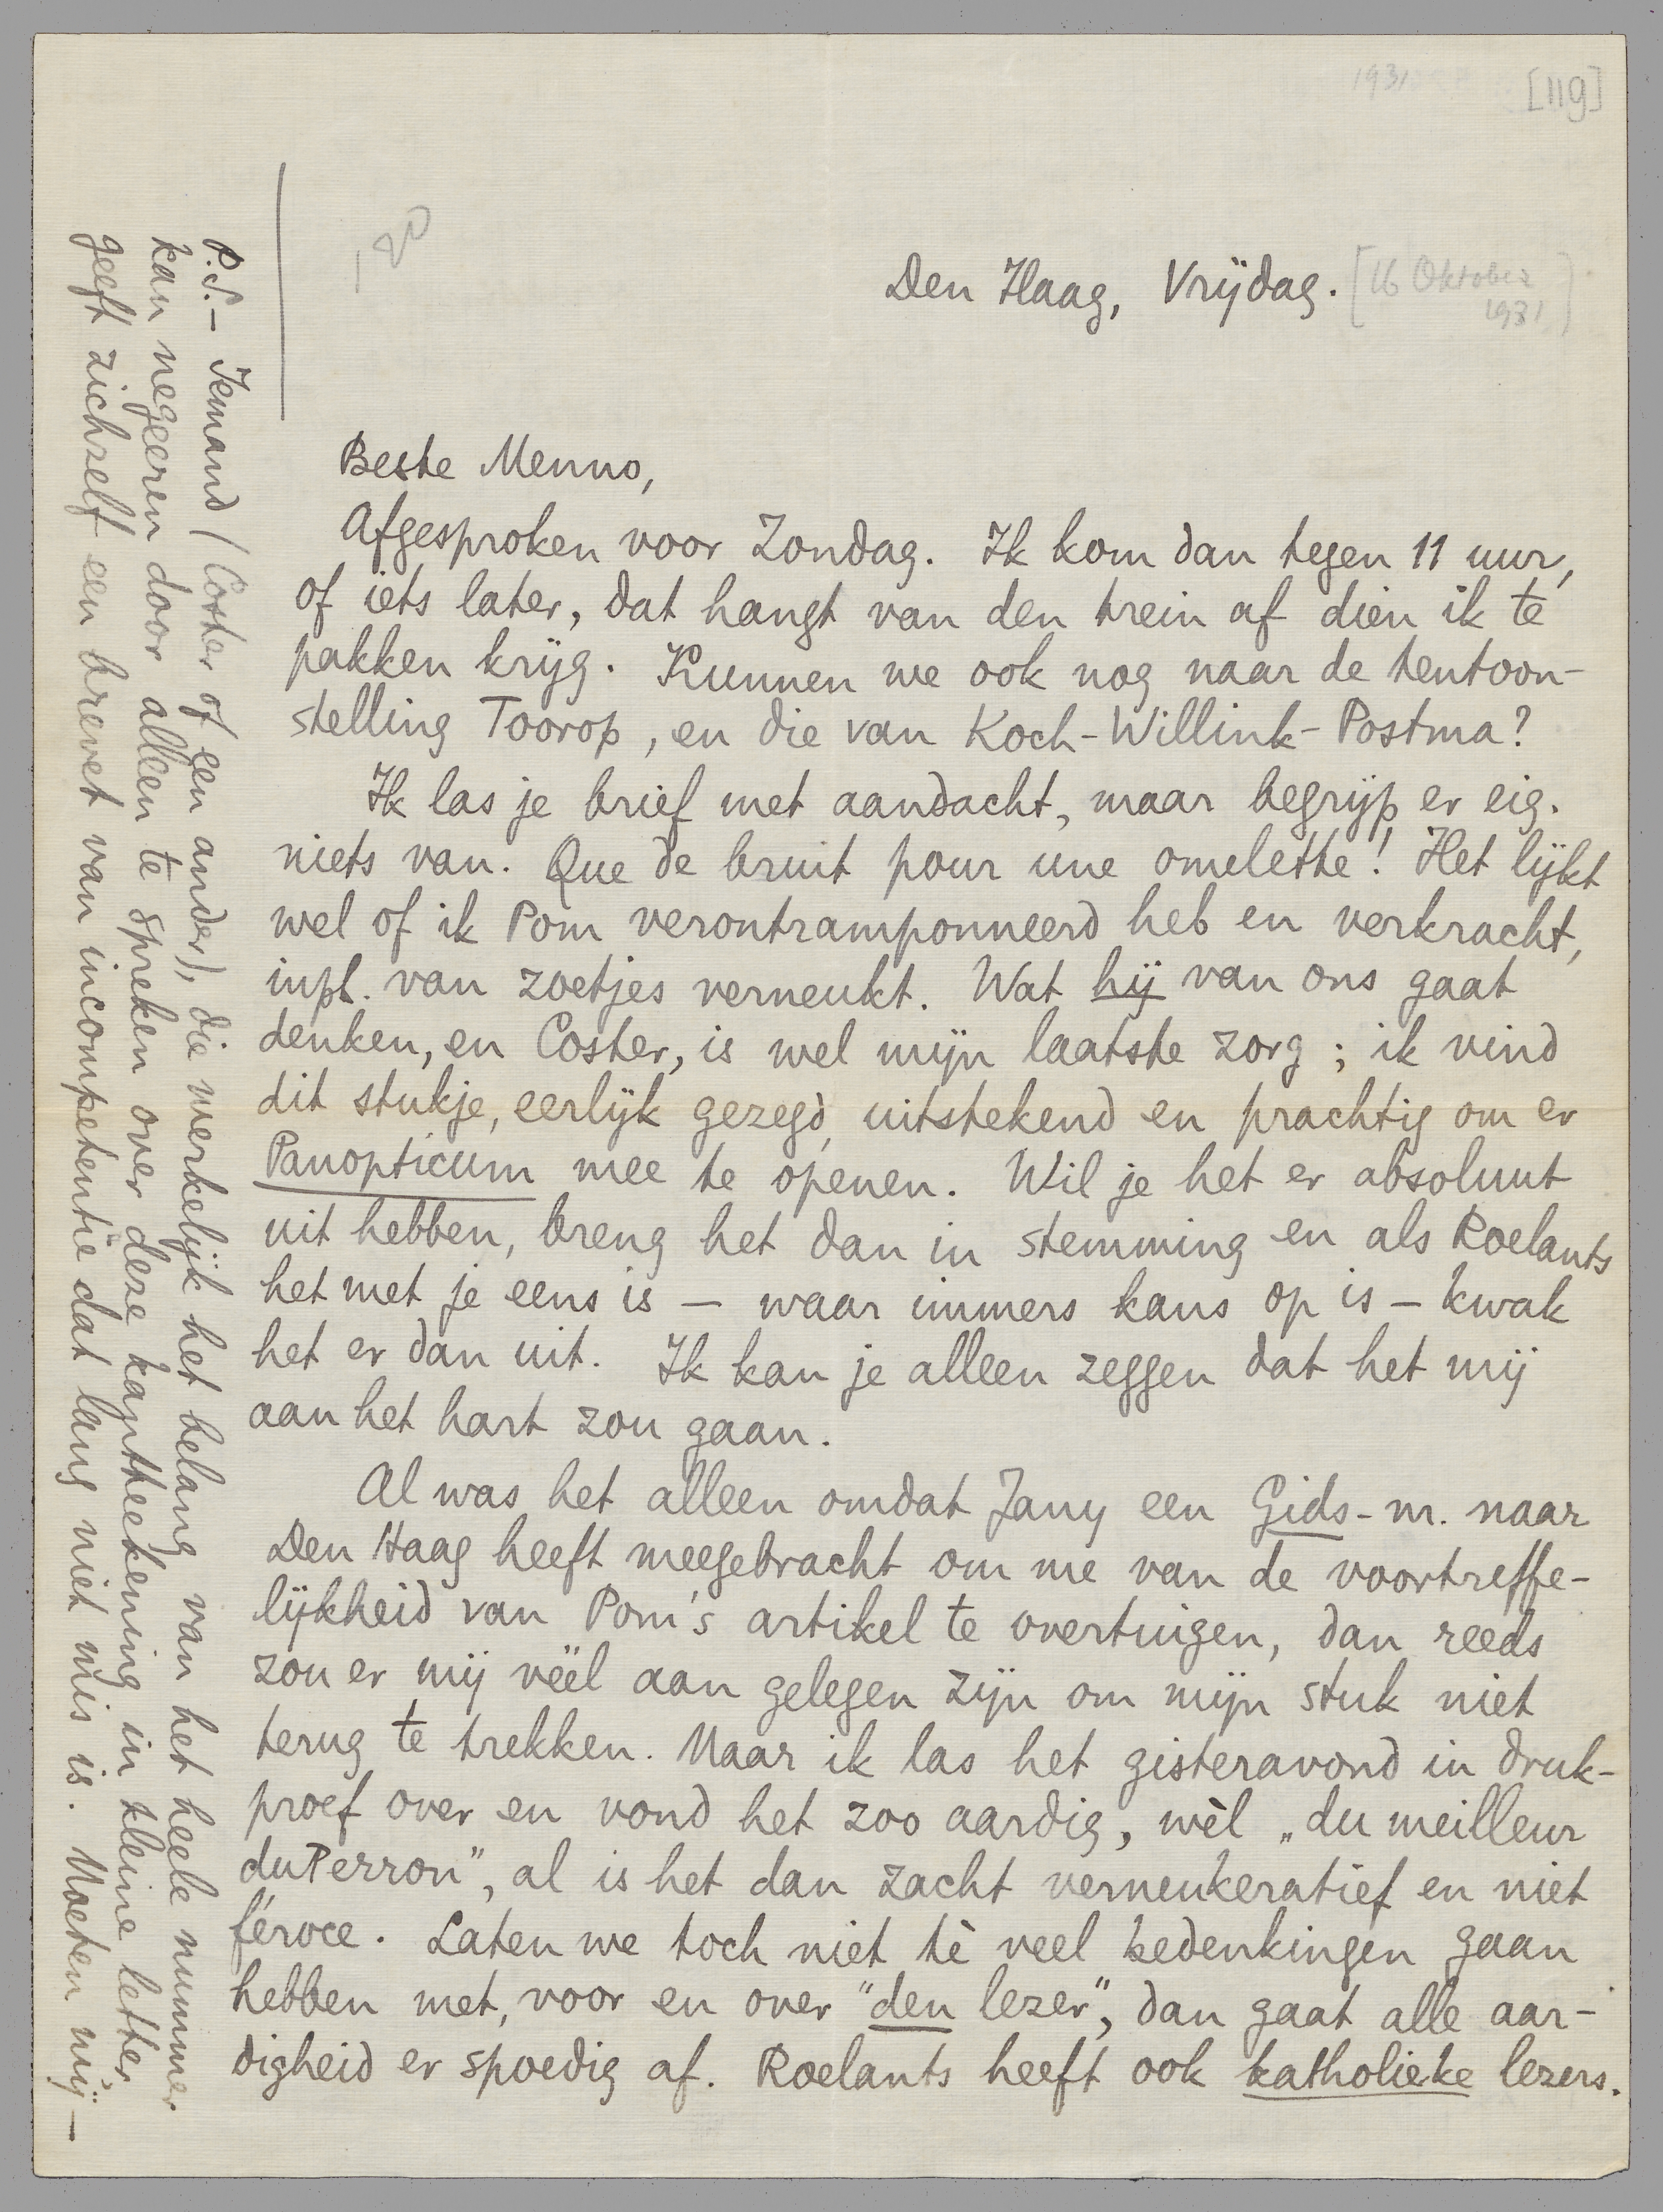 1931
[119]
120
Den Haag, Vrijdag. [16 Oktober
1931]
Beste Menno,
Afgesproken voor Zondag. Ik kom dan tegen 11 uur,
of iets later, dat hangt van den trein af dien ik te
pakken krijg. Kunnen we ook nog naar de tentoon-
stelling Toorop, en die van Koch-Willink-Postma?
Ik las je brief met aandacht, maar begrijp er eig.
niets van. Que de bruit pour une omelette! Het lijkt
wel of ik Pom verontramponneerd heb en verkracht,
inpl. van zoetjes verneukt. Wat hij van ons gaat
denken, en Coster, is wel mijn laatste zorg; ik vind
dit stukje, eerlijk gezegd, uitstekend en prachtig om er
Panopticum mee te openen. Wil je het er absoluut
uit hebben, breng het dan in stemming en als Roelants
het met je eens is – waar immers kans op is – kwak
het er dan uit. Ik kan je alleen zeggen dat het mij
aan het hart zou gaan.
Al was het alleen omdat Jany een Gids-nr. naar
Den Haag heeft meegebracht om me van de voortreffe-
lijkheid van Pom's artikel te overtuigen, dan reeds
zou er mij véél aan gelegen zijn om mijn stuk niet
terug te trekken. Maar ik las het gisteravond in druk-
proef over en vond het zoo aardig, wèl „du meilleur
duPerron", al is het dan zacht verneukeratief en niet
féroce. Laten we toch niet tè veel bedenkingen gaan
hebben met, voor en over "den lezer", dan gaat alle aar-
digheid er spoedig af. Roelants heeft ook katholieke lezers.
P.S. – Iemand (Coster of een ander), die werkelijk het belang van het heele nummer
kan negeeren door alleen te spreken over deze kantteekening in kleine letter,
geeft zichzelf een brevet van incompetentie dat lang niet mis is. Moeten wij –